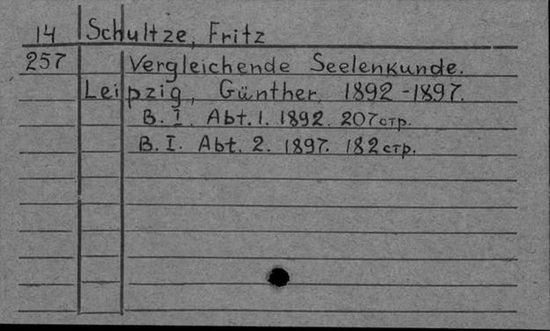 14 Schultze, Fritz
257 Vergleichende Seelenkunde.
Leipzig, Günther, 1892-1897.
B. I. Abt. 1. 1892. 207 стр.
B. I. Abt. 2. 1897. 182 стр.